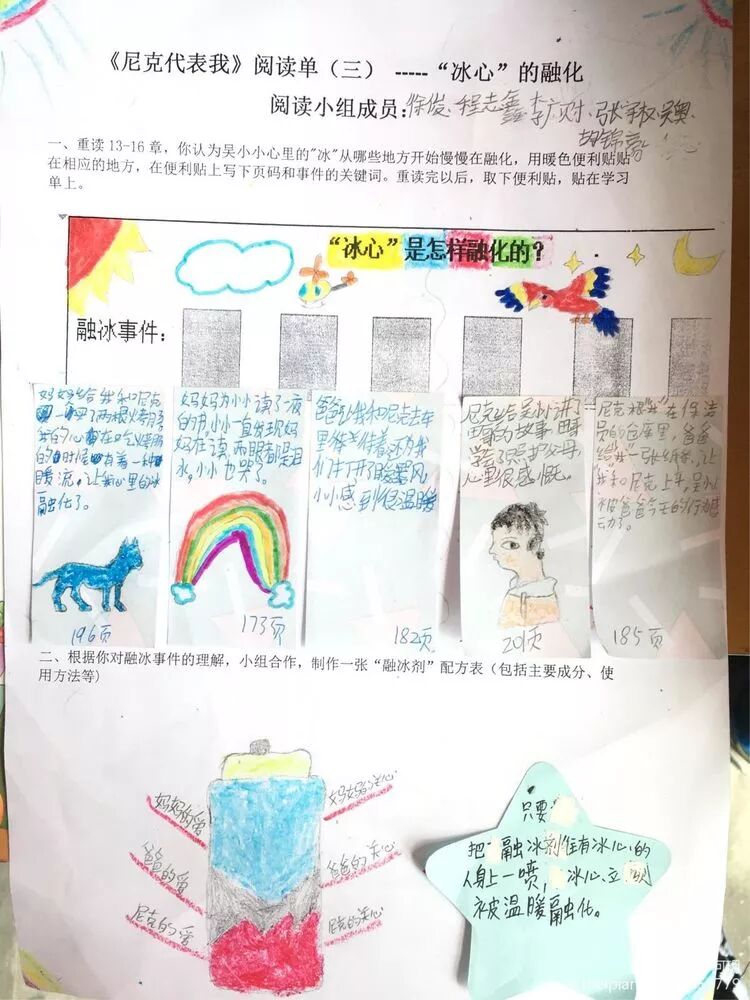 《尼克代表我》阅读单（三） -----“冰心”的融化
阅读小组成员:徐俊、程志鑫、李广财、张宇权、吴奥、
胡锦高
一、重读13-16章，你认为吴小小心里的"冰"从哪些地方开始慢慢在融化，用暖色便利贴贴
在相应的地方，在便利贴上写下页码和事件的关键词。重读完以后，取下便利贴，贴在学习
单上。
“冰心”是怎样融化的？
融冰事件：
妈妈给我和尼克
买了两根火考肠
我的心在吃火考肠
的时候有着一种
暖流。让我心里的冰
融化了。
196页
妈妈为小小读了一夜
的书,小小一直发现妈
妈在读,两眼都是泪
水,小小也哭了。
173页
爸让我和尼克去车
里坐着,还为我
们打开了暖风
小小感到很温暖
182页
尼克给吴小小讲了
的故事,
学会了照护父母,
心里很感慨。
201页
尼克和“我”在保洁
员的仓库里,爸爸
给我一张纸条,让
“我”和尼克上车,吴小小
被爸爸今天的行为感
动了。
185页
二、根据你对融冰事件的理解，小组合作，制作一张“融冰剂”配方表（包括主要成分、使
用方法等)
妈妈的爱
爸爸的爱
尼克的爱
妈妈的关心
爸爸的关心
尼克的关心
只要
把融冰剂往有冰心的
人身上一喷,冰心、立
被温暖融化。